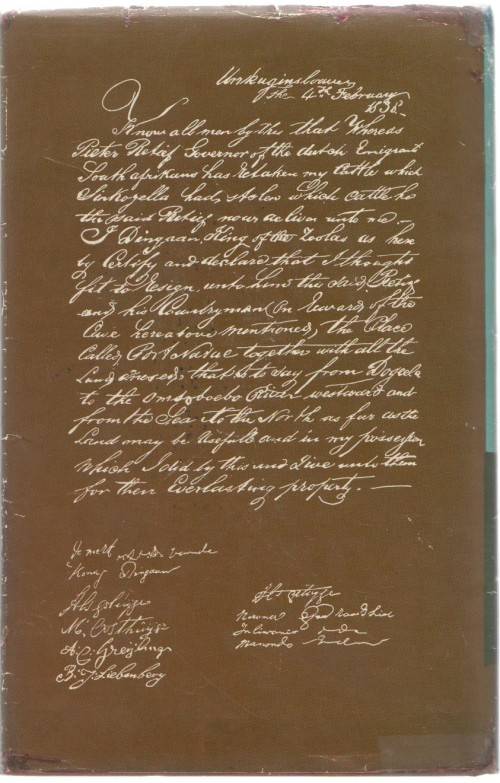 Umkuginsloave
the 4th February
1838 -
Know all men by this that Whereas
Pieter Retief Governor of the dutch Emigrant
South afrikans has Retaken my Cattle which
Sinkoyella had stolen which cattle he
the said Retief now deliver unto me -
I Dingaan, King of the Zoolas as here
by Certify and declare that I thought
fit to Resign unto him the said Retief
and his Countrymen on Reward of the
Case hereabove mentioned, the Place
Called Port Natal together with all the
Land annexed that is to say from Dogeela
to the Omsoboebo River westward and
from the Sea to the North as far as the
Land may be Usefull and in my possession
Which I did by this and Give unto them
for their Everlasting property. —
De merk van de
Koning Dingaan
M. Oosthuyse
A.C. Greyling
B.J. Liebenberg